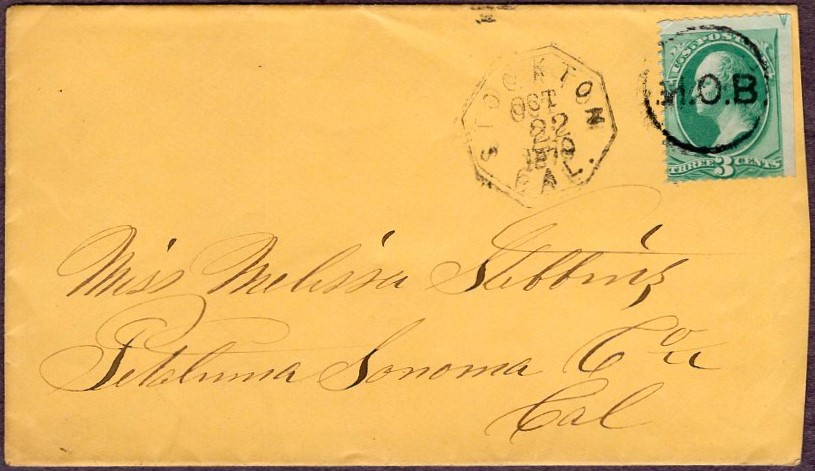 STOCKTON
OCT
22
CAL.
U.S. POST
M.O.B.
THREE 3 CENTS
Miss Melissa Stebbins
Petaluma Sonoma Co
Cal